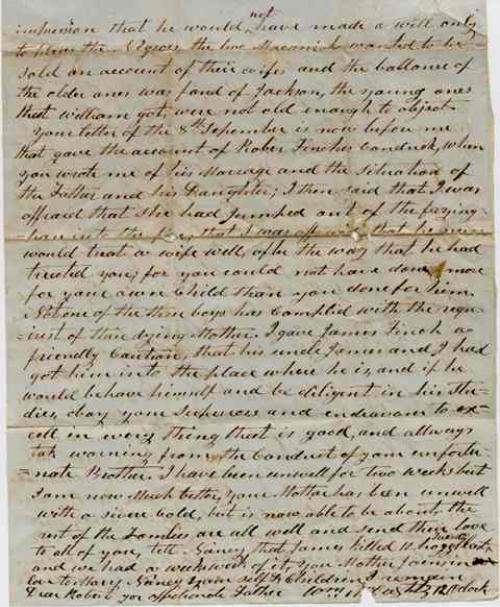 not
impression that he would, have made a will only
to please the Negroes, the two Macanicks wanted to be
sold on account of their wifes and the ballance of
the older ones was fond of Jackson, the young ones
that William got, were not old enough to object.
Your letter of the 8th September is now before me
that gave the account of Rober Finches Conduck, when
you wrote me of his Marriage and the Situation of
the Father and his Daughter; I then said that I was
affraid that she had Jumped out of the frying-
pan into the fire, that I was that he never
would treat a wife well, after the way that he had
treated you; for you could not have done more
for your own Child than you done for him.
Not one of the three boys has Complied with the requ-
-est of their dying Mother. I gave James Finch a
friendly Caution, that his uncle James and I had
got him into the place where he is, and if he
would behave himself and be diligent in his stu-
dies, obay your Superiors and endeavour to ex-
cell in every thing that is good, and allways
tak warning from the Conduct of your unfortu-
-nate Brother. I have been unwell for two weeks but
I am now Much better, your Mother has been unwell
with a severe Cold, but is now able to be about, the
rest of the Families are all well and send their love
to all of you, tell Nancy that James killed 11 hogs
and we had a week of it, your Mother Joins in
love to Mary. Nancy your self & Children I remain
Dear Robert your affectionate Father Wm 12 OClock